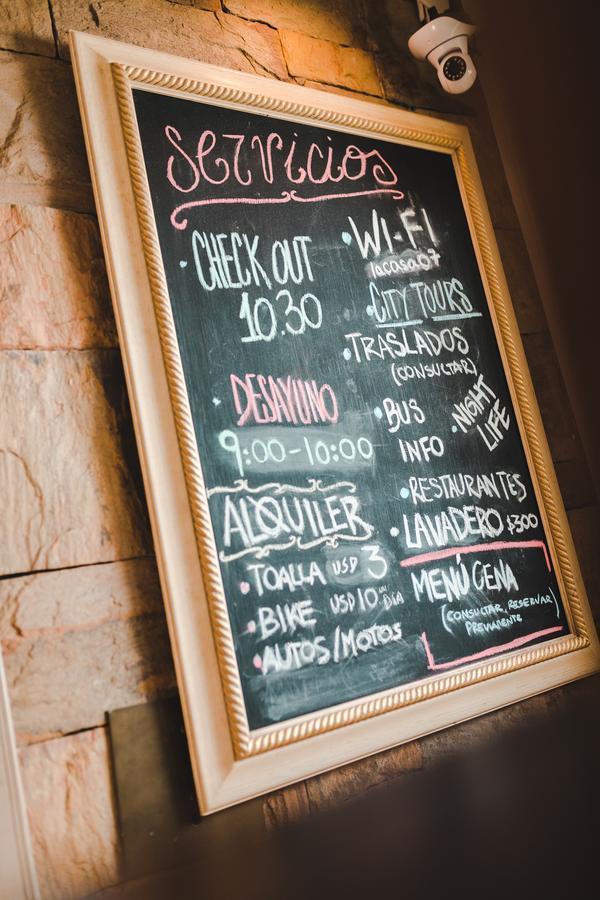 Servicios
• CHECK OUT
10.30
• DESAYUNO
9:00-10:00
ALQUILER
• TOALLA USD 3
• BIKE USD 10 DIA
• AUTOS/MOTOS
• WI-FI
lacasa07
• CITY TOURS
• TRASLADOS
(CONSULTAR)
• BUS
INFO
• NIGHT
LIFE
• RESTAURANTES
• LAVADERO $300
MENÚ CENA
(CONSULTAR, RESERVAR
PREVIAMENTE)